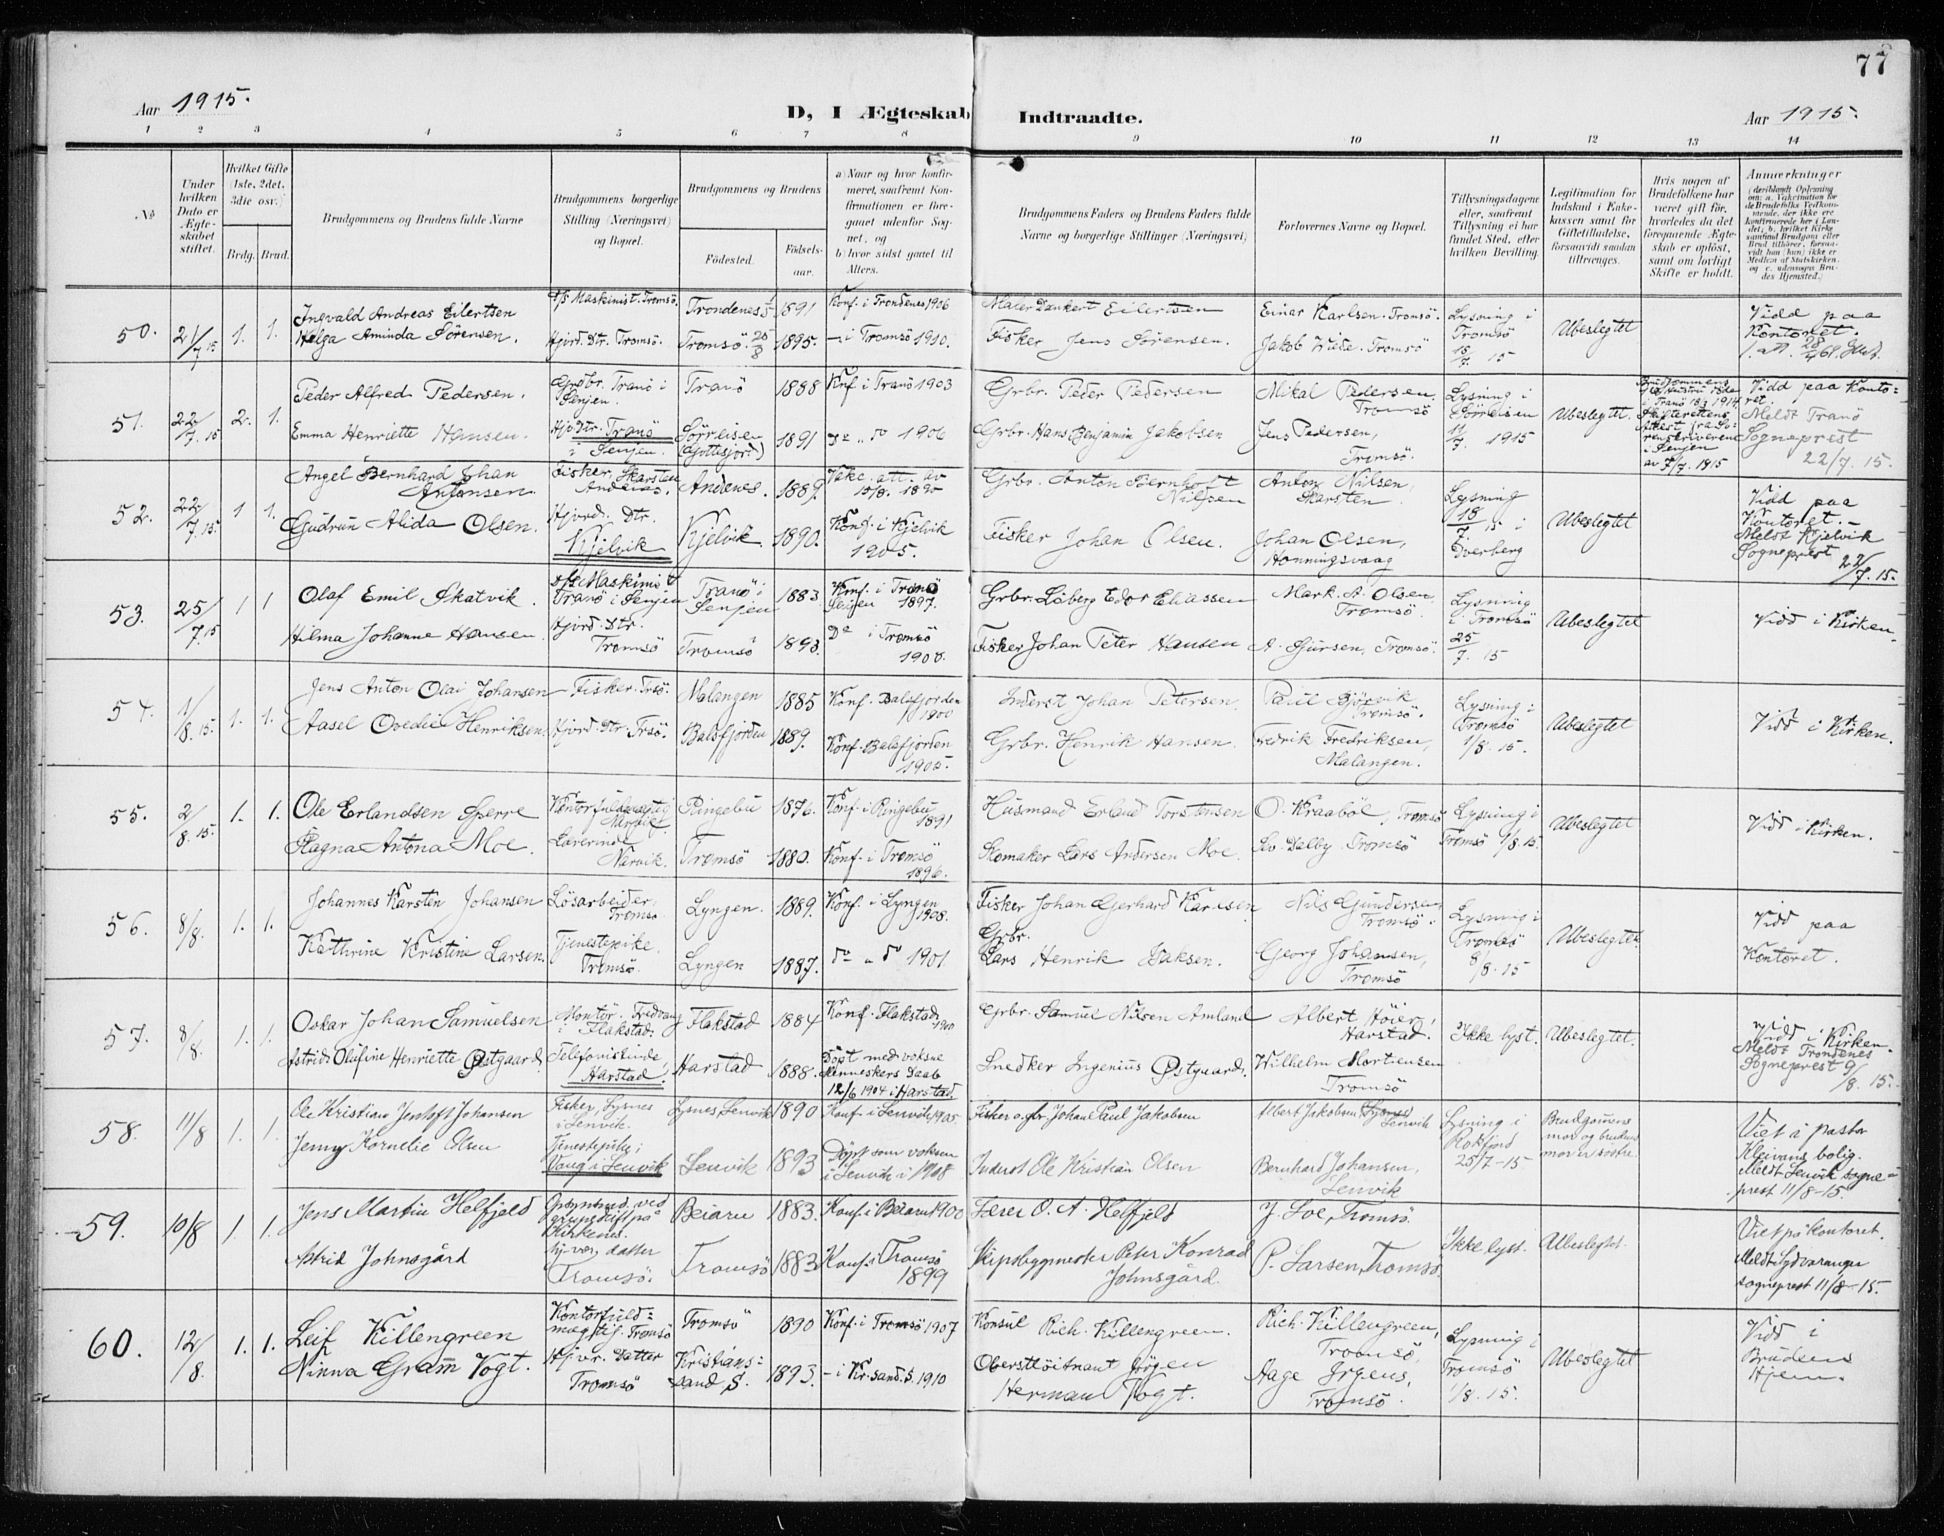 77
Aar 1915.
D, I Ægteskab Indtraadte.
Aar 1915.
1 2 3 4 5 6 7 8 9 10 11 12 13 14
No
Under hvilken Dato er Ægteskabet stiftet.
Hvilket Gifte (1ste, 2det, 3die osv.)
Brdg. Brud.
Brudgommens og Brudens fulde Navne
Brudgommens borgerlige Stilling (Næringsvei) og Bopæl.
Brudgommens og Brudens
Födested.
Födsels-aar.
a) Naar og hvor konfirmeret, saafremt Konfirmationen er foregaaet udenfor Sognet, og
b) hvor sidst gaaet til Alters.
Brudgommens Faders og Brudens Faders fulde Navne og borgerlige Stillinger (Næringsvei)
Forlovernes Navne og Bopæl.
Tillysningsdagene eller, saafremt Tillysning ei har fundet Sted, efter hvilken Bevilling.
Legitimation for Indskud i Enkekassen samt for Giftetilladelse, forsaavidt saadan tiltrænges.
Hvis nogen af Brudefolkene har været gift för, hvorledes da det foregaaende Ægteskab er oplöst, samt om lovligt Skifte er holdt.
Anmærkninger
50. 21/7 15 1. 1.
Ingvald Andreas Eilertsen
Helga Aminda Sörensen.
Maskinist. Tromsö.
Hjvd. Dtr. Tromsö.
Trondenes 1891
Tromsö. 1895.
Konf. i Trondenes 1906
— i Tromsö 1910.
Eilertsen
Fisker Jens Sörensen.
Einar Karlsen. Tromsö.
Jakob Tromsö
Lysning i Tromsö 15
Ubeslegtet
Vidd paa Kontoret.
51. 22/7. 15 2. 1.
Peder Alfred Pedersen.
Emma Henriette Hansen.
Grdbr. Tranö i Senjen.
Hjvd. Dtr. Tranö i Senjen.
Tranö 1888
Sörreisen 1891
Knf i Tranö 1903
Do „ do 1906
Grbr. Peder Pedersen
Grbr. Hans Benjamin Jakobsen
Mikal Pedersen, Tromsö
Jens Pedersen, Tromsö.
Lysning i Sörreisen 11/7. 1915
Ubeslegtet.
Vidd paa Kontoret.
Meldt Tranö Sogneprest 22/7. 15.
52. 22/7. 15. 1 1.
Angel Bernhard Johan Antonsen.
Gudrun Alida Olsen.
Fisker, Skarsten Andenes.
Hjvrd. Dtr. Kjelvik
Andenes. 1889.
Kjelvik. 1890.
Vakc. att. av 15/8. 1890
Konf. i Kjelvik 1905.
Grbr. Anton Bernhoft Nilsen
Fisker Johan Olsen.
Anton Nilsen, Skarsten
Johan Olsen, Honningsvaag
Lysning 18/7 15 i Dverberg
Ubeslegtet
Vidd paa Kontoret.
Meldt Kjelvik Sogneprest 22/7. 15.
53. 25/7 15 1 1
Olaf Emil Skatvik.
Hilma Johanne Hansen.
Maskinist Tranö i Senjen
Hjvrd. Dtr. Tromsö
Tranö i Senjen 1883
Tromsö 1893.
Knf. i Tranö Senjen 1897.
Do i Tromsö 1908.
Grbr. Eliassen
Fisker Johan Peter Hansen
Mark. A. Olsen, Tromsö.
A. Sjursen, Tromsö.
Lysning i Tromsö 25/7. 15
Ubeslegtet
Vidd i Kirken.
54. 1/8. 15. 1. 1.
Jens Anton Olai Johansen
Aasel Ovedie Henriksen.
Fisker. Trsö.
Hjvrd. Dtr. Trsö.
Malangen 1885
Balsfjorden 1889.
Konf. Balsfjorden 1900
Konf. Balsfjorden 1905.
Inderst Johan Petersen.
Grbr. Henrik Hansen.
Paul Björvik Tromsö.
Fredrik Fredriksen, Malangen.
Lysning i Tromsö 1/8. 15.
Ubeslegtet
Vidd i Kirken.
55. 2/8. 15. 1. 1.
Ole Erlandsen Sperre
Ragna Antona Moe.
Kontorfuldmægtig Narvik
Lærerinde Narvik.
Ringebu 1876.
Tromsö 1880.
Konf. i Ringebu 1891
Konf. i Tromsö 1896.
Husmand Erland Torstensen
Skomaker Lars Andersen Moe.
O. Kraaböl, Tromsö
Sv. Dalby Tromsö
Lysning i Tromsö 1/8. 15.
Ubeslegtet
Vidd i Kirken.
56. 8/8. 1. 1.
Johannes Karsten Johansen
Kathrine Kristine Larsen.
Lösarbeider, Tromsö
Tjenestepike. Tromsö.
Lyngen. 1889.
Lyngen 1887.
Konf. i Lyngen 1905.
do „ do 1901
Fisker Johan Gerhard Karlsen
Grbr. Lars Henrik Isaksen.
Nils Gundersen, Tromsö.
Georg Johansen, Tromsö
Lysning i Tromsö 8/8. 15
Ubeslegtet
Vidd paa Kontoret.
57. 8/8. 1. 1.
Oskar Johan Samuelsen
Astrid Olufine Henriette Östgaard.
Montör. Fredvang i Flakstad.
Telefonistinde, Harstad
Flakstad 1884
Harstad 1888.
Konf. Flakstad 1900
Döpt med voksne Menneskers Daab 12/6 1904 i Harstad
Grbr. Samuel Nilsen Amland
Snedker Ingenius Östgaard.
Albert Höier, Harstad.
Wilhelm Mortensen Tromsö
Ikke lyst.
Ubeslegtet.
Vidd i Kirken.
Meldt Trondenes Sogneprest 9/8. 15.
58. 11/8 1. 1.
Ole Kristian Jentoft Johansen
Jenny Kornelie Olsen
Fisker, Lysnes i Lenvik.
Tjenestepike, Vang i Lenvik
Lysnes, Lenvik 1890
Lenvik 1893
Konf. i Lenvik 1905.
Döpt som voksen i Lenvik i 1908
Fisker og gbr. Johan Paul Jakobsen
Inderst Ole Kristian Olsen
Albert Jakobsen, Lysnes Lenvik
Bernhard Johansen, Lenvik
Lysning i Rossfjord 25/7-15
Brudgommens mor og brudens mor er söstre.
Viet i pastor Kleivans bolig.
Meldt Lenvik sogneprest 11/8-15.
59. 10/8 1. 1.
Jens Martin Helfjeld
Astrid Johnsgård
Kirkenes.
Hjvær. datter Tromsö.
Beiarn 1883.
Tromsö 1883
Konf. i Beiarn 1900
Konf. i Tromsö 1899
Lærer O. A. Helfjeld
Skipsbygmester Peter Konrad Johnsgård.
J. Loe, Tromsö.
P. Larsen, Tromsö.
Ikke lyst.
Ubeslegtet.
Viet på kontoret.
Meldt Sydvaranger sogneprest 11/8-15.
60. 12/8. 1. 1.
Leif Killengreen
Ninna Gram Vogt.
Kontorfuldmægtig. Tromsö
Hjvr. Datter Tromsö
Tromsö 1890
Kristianssand S. 1893.
Konf. i Tromsö 1907
— i Kr.sand. S. 1910
Konsul Rich. Killengreen.
Oberstlöitnant Jörgen Herman Vogt.
Rich. Killengreen, Tromsö,
Aage Irgens, Tromsö.
Lysning i Tromsö 1/8. 15.
Ubeslegtet
Vidd i Brudens Hjem.